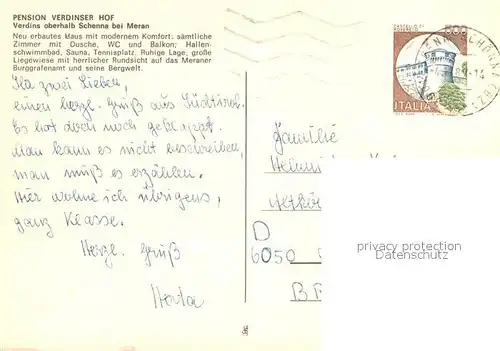 PENSION VERDINSER HOF
Verdins oberhalb Schenna bei Meran
Neu erbautes Haus mit modernem Komfort: sämtliche
Zimmer mit Dusche, WC und Balkon; Hallen-
schwimmbad, Sauna, Tennisplatz. Ruhige Lage, große
Liegewiese mit herrlicher Rundsicht auf das Meraner
Burggrafenamt und seine Bergwelt.
Ihr zwei Lieben,
einen herzl. Gruß aus Südtirol.
Es hat doch noch geklappt.
Man kann es nicht beschreiben,
man muß es erzählen.
Hier wohne ich übrigens,
ganz Klasse.
Herzl. Gruß
Herta
500
ITALIA
Familie
D
6050
privacy protection
Datenschutz